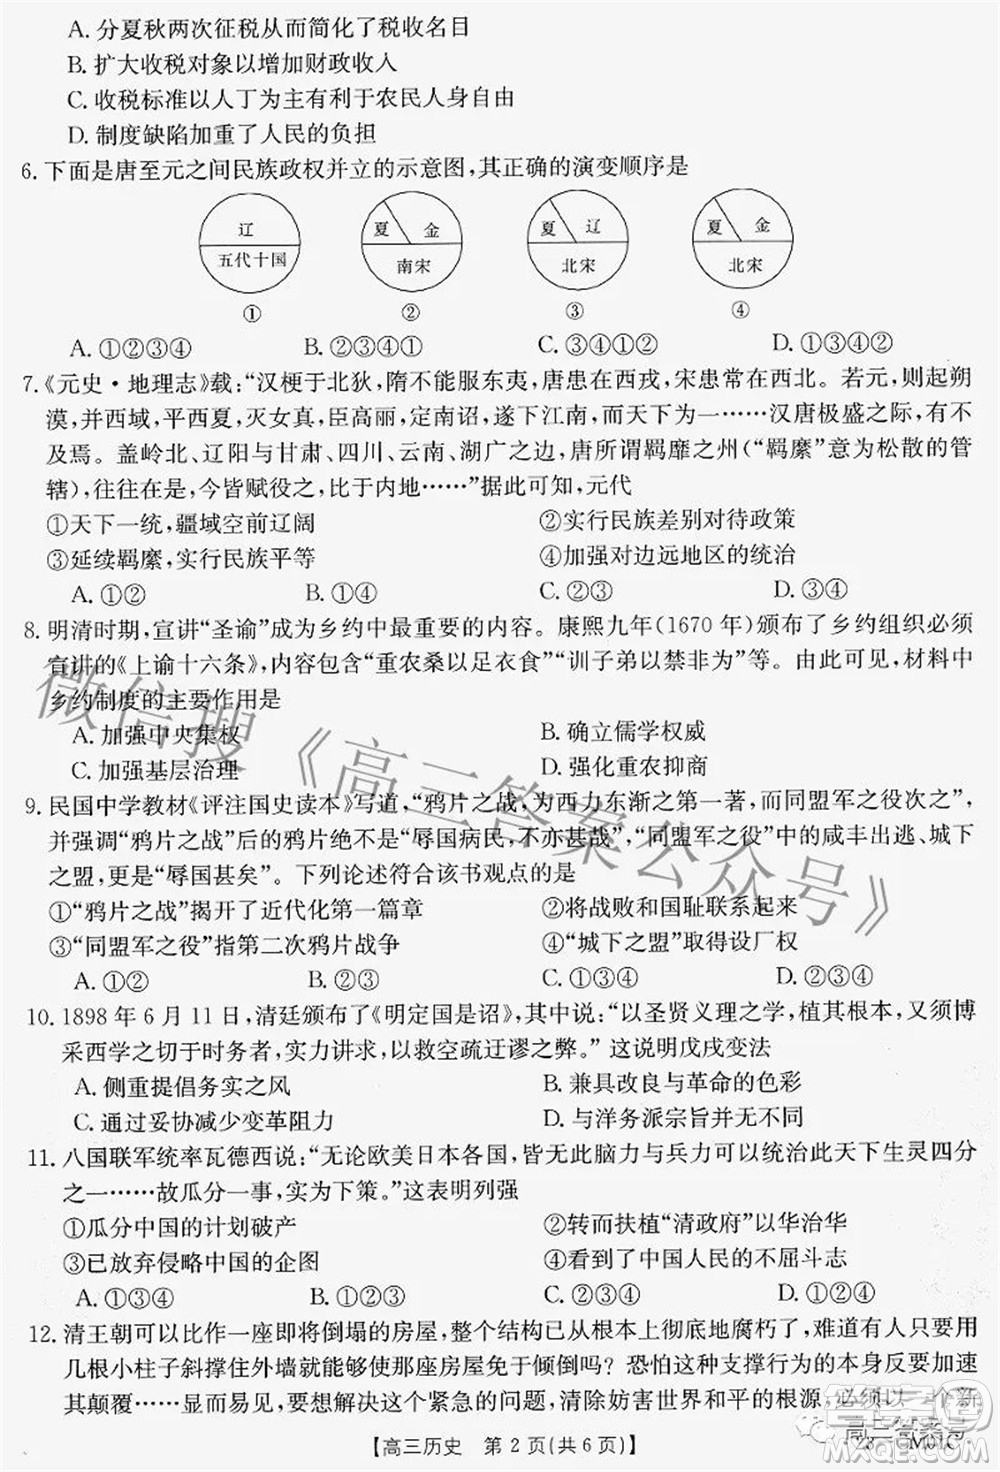 A. 分夏秋两次征税从而简化了税收名目
B. 扩大收税对象以增加财政收入
C. 收税标准以人丁为主有利于农民人身自由
D. 制度缺陷加重了人民的负担
6. 下面是唐至元之间民族政权并立的示意图,其正确的演变顺序是
辽 夏 金 夏 辽 夏 金
五代十国 南宋 北宋 北宋
① ② ③ ④
A. ①②③④ B. ②③④① C. ③④②① D. ①③④②
7.《元史·地理志》载:“汉梗于北狄,隋不能服东夷,唐患在西戎,宋患常在西北。若元,则起朔
漠,并西域,平西夏,灭女真,臣高丽,定南诏,遂下江南,而天下为一……汉唐极盛之际,有不
及焉。盖岭北、辽阳与甘肃、四川、云南、湖广之边,唐所谓羁靡之州(“羁縻”意为松散的管
辖),往往在是,今皆赋役之,比于内地……”据此可知,元代
①天下一统,疆域空前辽阔 ②实行民族差别对待政策
③延续羁縻,实行民族平等 ④加强对边远地区的统治
A. ①② B. ①④ C. ②③ D. ③④
8. 明清时期,宣讲“圣谕”成为乡约中最重要的内容。康熙九年(1670 年)颁布了乡约组织必须
宣讲的《上谕十六条》,内容包含“重农桑以足衣食”“训子弟以禁非为”等。由此可见,材料中
乡约制度的主要作用是
A. 加强中央集权 B. 确立儒学权威
C. 加强基层治理 D. 巩固重农抑商
9. 民国中学教材《评注国史读本》写道,“鸦片之战,为西力东渐之第一著,而同盟军之役次之”,
并强调“鸦片之战”后的鸦片绝不是“辱国病民,不亦甚哉”,“同盟军之役”中的咸丰出逃、城下
之盟,更是“辱国甚矣”。下列论述符合该书观点的是
①“鸦片之战”揭开了近代化第一篇章 ②将战败和国耻联系起来
③“同盟军之役”指第二次鸦片战争 ④“城下之盟”取得设厂权
A. ①② B. ②③ C. ①③④ D. ②③④
10. 1898 年 6 月 11 日,清廷颁布了《明定国是诏》,其中说:“以圣贤义理之学,植其根本,又须博
采西学之切于时务者,实力讲求,以救空疏迂谬之弊。”这说明戊戌变法
A. 侧重提倡务实之风 B. 兼具改良与革命的色彩
C. 通过妥协减少变革阻力 D. 与洋务派宗旨并无不同
11. 八国联军统率瓦德西说:“无论欧美日本各国,皆无此脑力与兵力可以统治此天下生灵四分
之一……故瓜分一事,实为下策。”这表明列强
①瓜分中国的计划破产 ②转而扶植“清政府”以华治华
③已放弃侵略中国的企图 ④看到了中国人民的不屈斗志
A. ①③④ B. ①②③ C. ②③④ D. ①②④
12. 清王朝可以比作一座即将倒塌的房屋,整个结构已从根本上彻底地腐朽了,难道有人只要用
几根小柱子斜撑住外墙就能够使那座房屋免于倾倒吗?恐怕这种支撑行为的本身反要加速
其颠覆……显而易见,要想解决这个紧急的问题,清除妨害世界和平的根源,必须以一个新
【高三历史 第 2 页(共 6 页)】
M01C
微信搜《高三答案公众号》
高三答案号